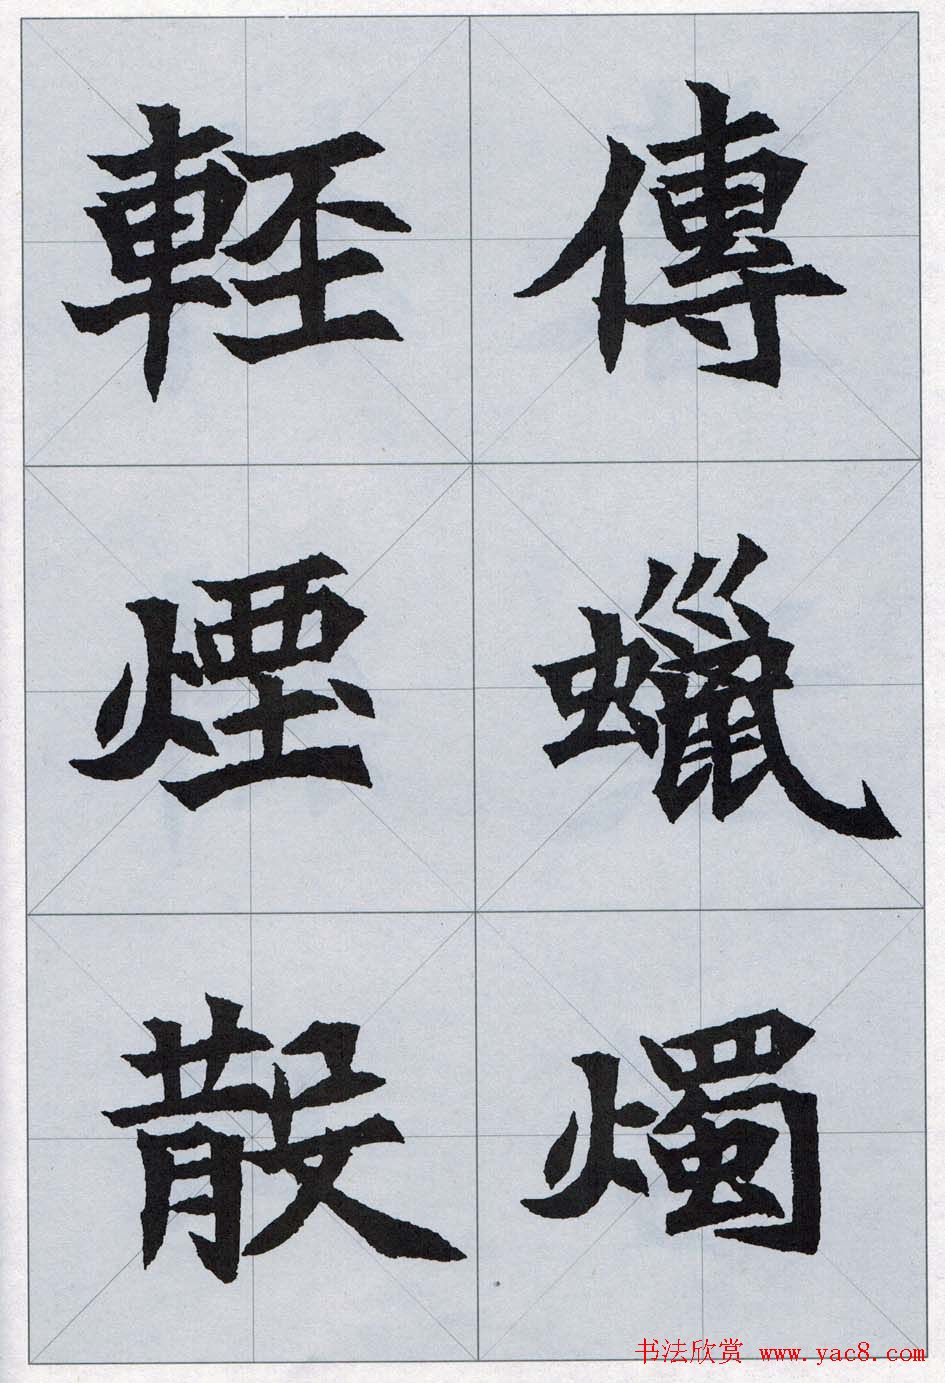 傳蠟燭
輕煙散
书法欣赏 www.yac8.com